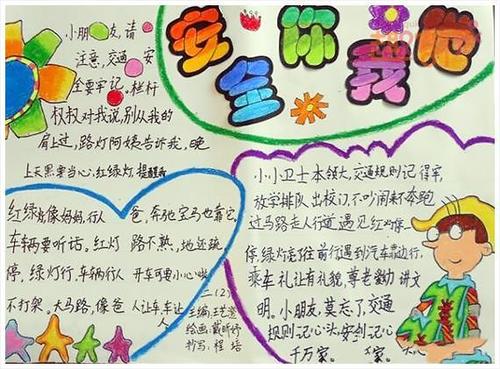 安 你 他
全 我
小朋友,请
注意,交通安
全要牢记,栏杆
叔叔对我说,别从我的
肩上过,路灯阿姨告诉我,晚
上天黑要当心,红绿灯提醒我
红绿灯像妈妈,行人
车辆要听话。红灯
停,绿灯行,车辆行人
不打架。大马路,像爸
爸,奔驰宝马也靠它,
路不熟,地还跳
开车可要小心咪
人让车,车让
人
二(2)
主编:王艺澄
绘画:戴昕烨
抄写:程培
小小卫士本领大,交通规则记得牢,
放学排队出校门,不吵闹来不奔跑
过马路走人行道,遇见红灯停一
停,绿灯亮了往前行遇到汽车靠边行,
乘车礼让有礼貌,尊老爱幼讲文
明。小朋友,莫忘了,交通
规则记心头,安全记心
千万家。